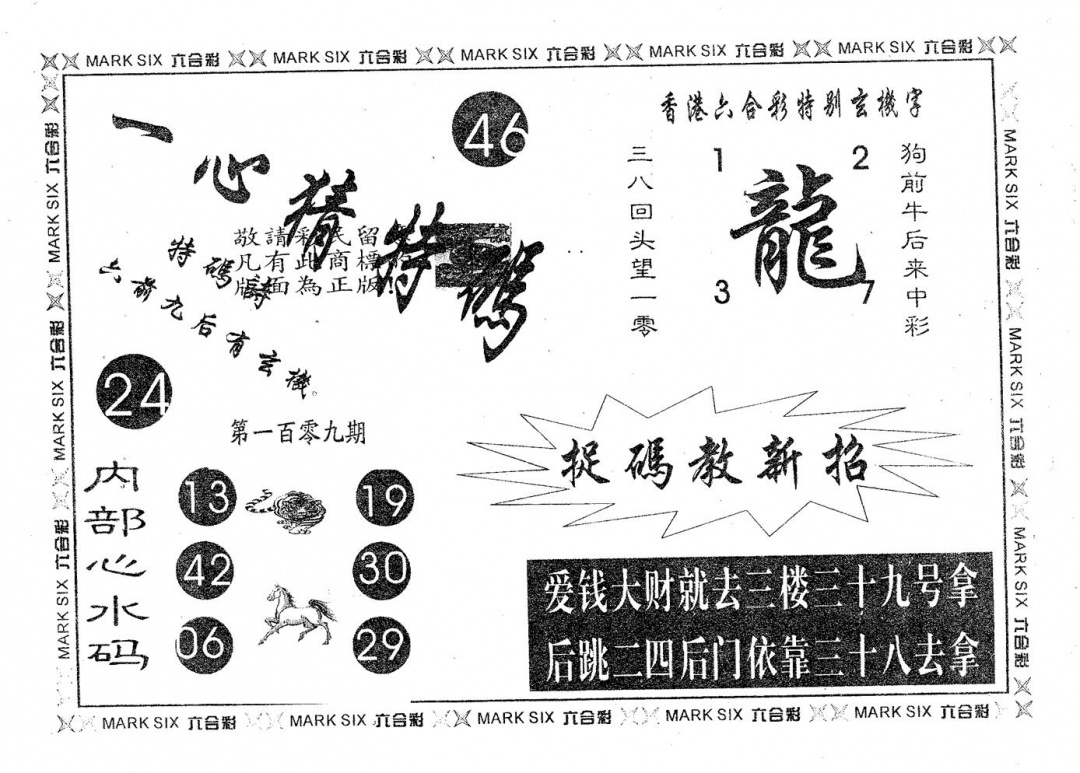 MARK SIX 六合彩 MARK SIX 六合彩 MARK SIX 六合彩 MARK SIX 六合彩 MARK SIX 六合彩
一心猜特碼
46
敬請彩民留
凡有此商標
版面為正版!
特碼詩
六前九后有玄機。
24
第一百零九期
内部心水码
13 19
42 30
06 29
香港六合彩特别玄機字
三八回头望一零
1 2
龍
3 7
狗前牛后来中彩
捉碼教新招
爱钱大财就去三楼三十九号拿
后跳二四后门依靠三十八去拿
MARK SIX 六合彩 MARK SIX 六合彩 MARK SIX 六合彩
MARK SIX 六合彩 MARK SIX 六合彩 MARK SIX 六合彩
MARK SIX 六合彩 MARK SIX 六合彩 MARK SIX 六合彩 MARK SIX 六合彩 MARK SIX 六合彩